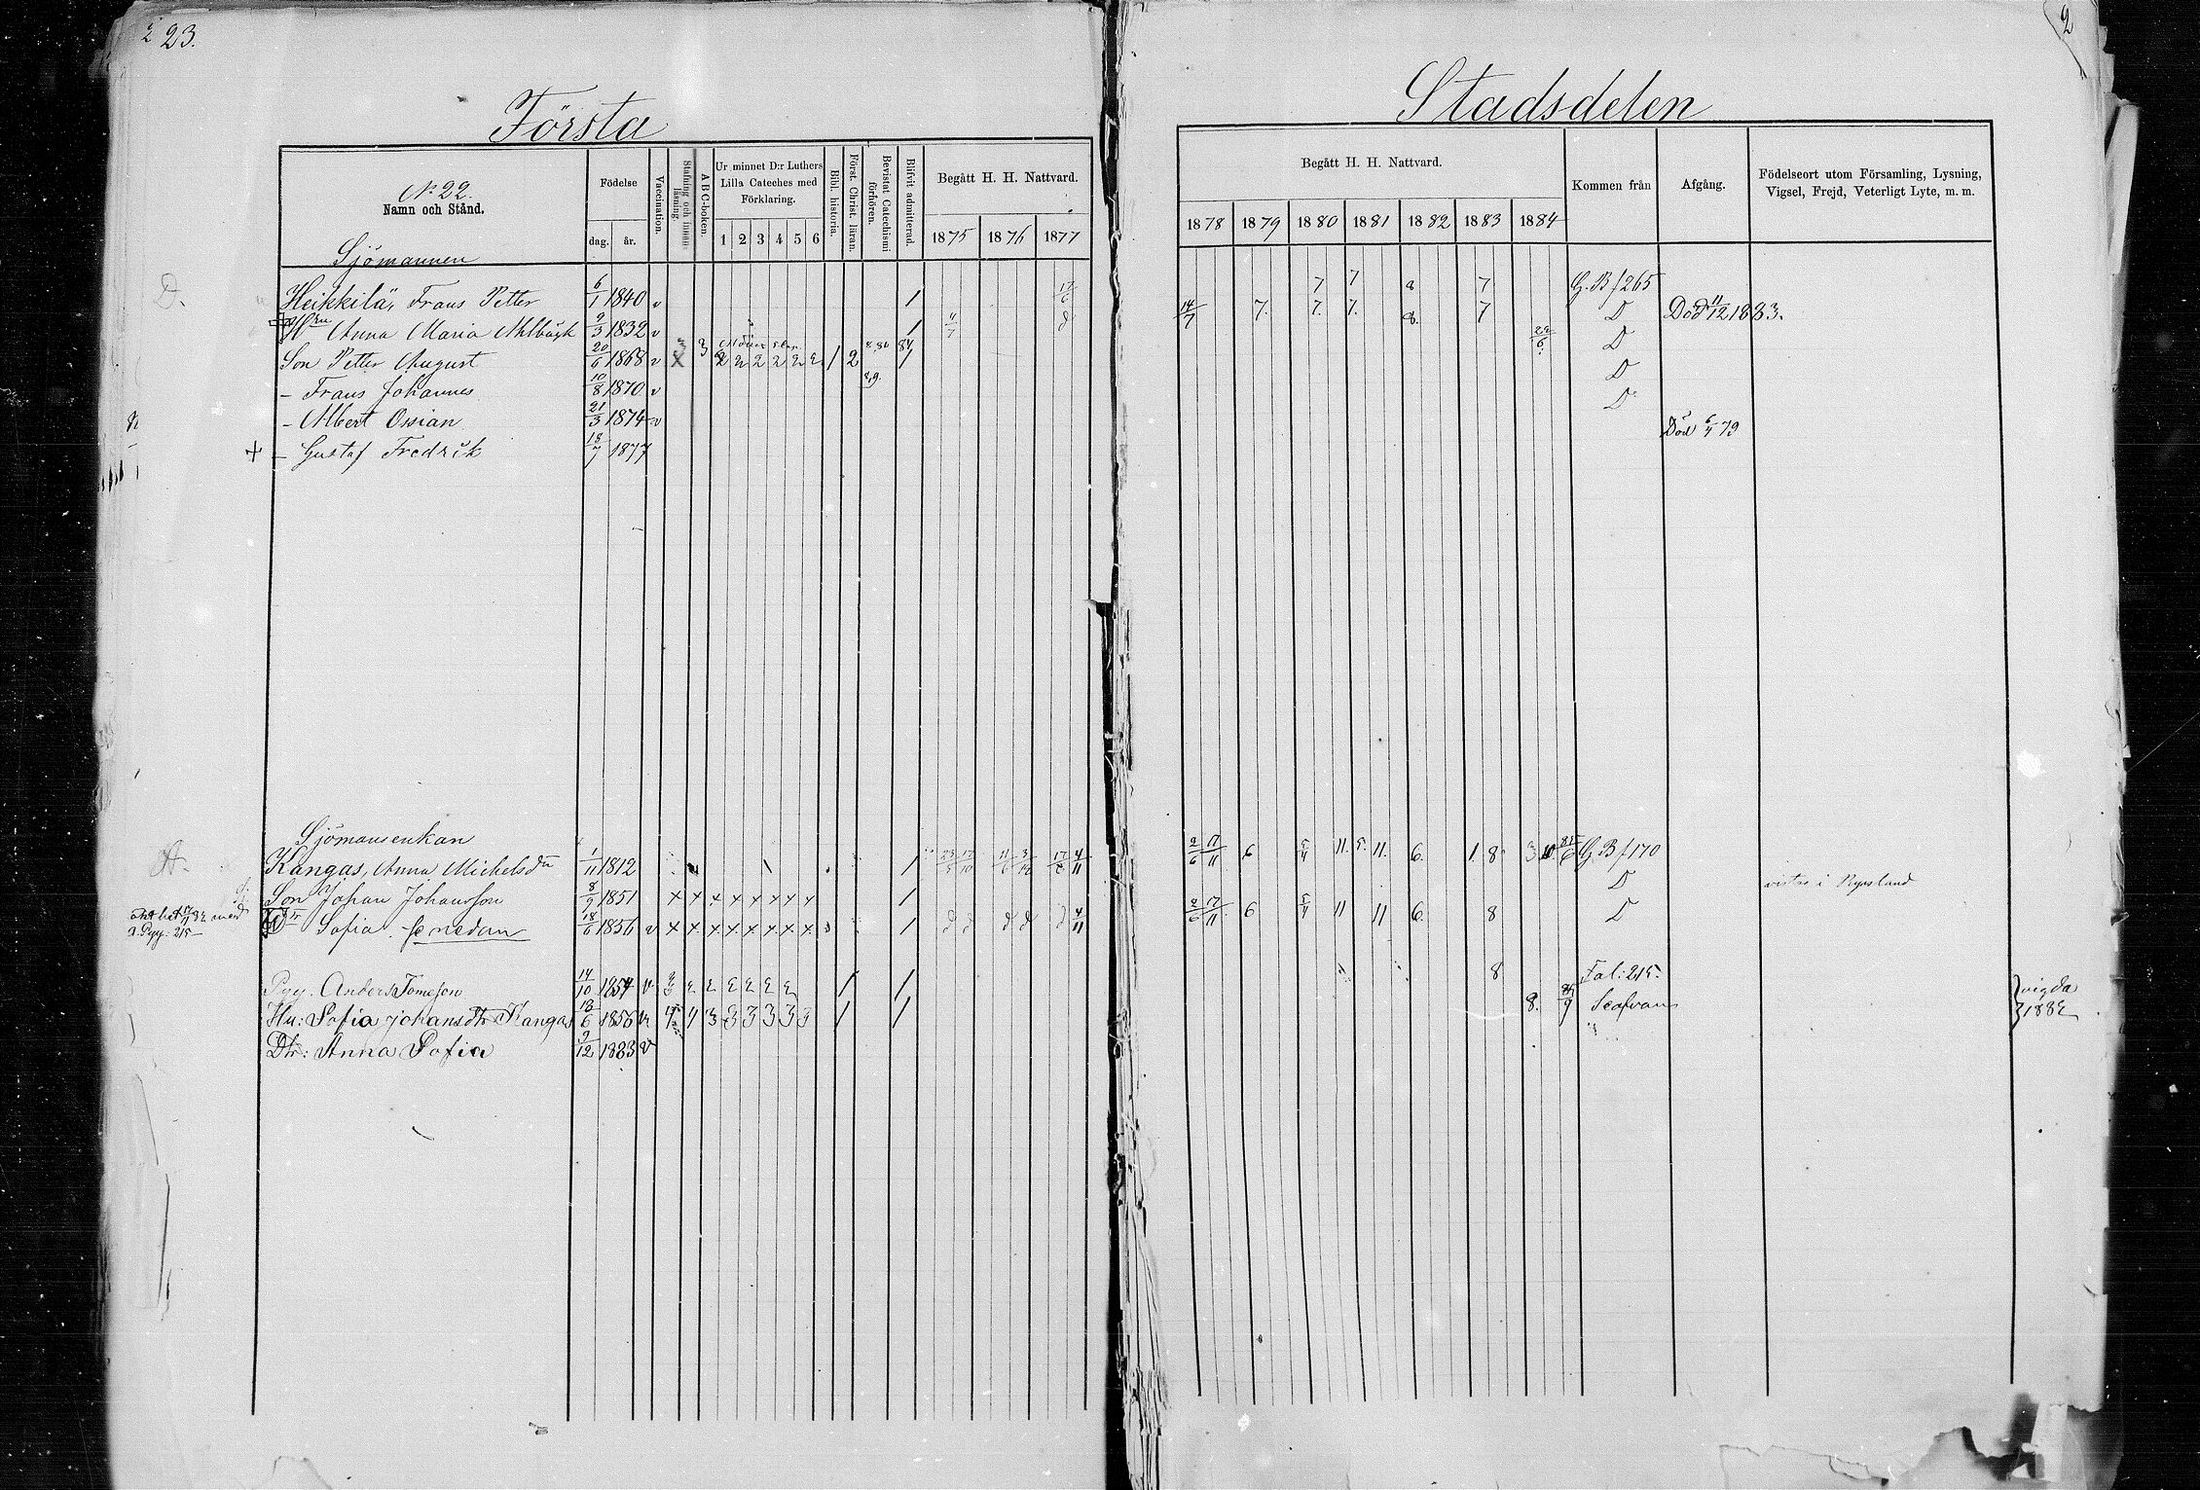 23.
2
Första Stadsdelen
No 22.
Namn och Stånd.
Födelse
dag. år.
Vaccination.
Stafning och innanläsning.
A B C-boken.
Ur minnet D:r Luthers Lilla Cateches med Förklaring.
1 2 3 4 5 6
Bibl. historia.
Först. Christ. läran.
Bevistat Catechismi förhören.
Blifvit admitterad.
Begått H. H. Nattvard.
1875 1876 1877
Begått H. H. Nattvard.
1878 1879 1880 1881 1882 1883 1884
Kommen från
Afgång.
Födelseort utom Församling, Lysning, Vigsel, Frejd, Veterligt Lyte, m. m.
Sjömannen
D. Heikkilä, Frans Petter 6/1 1840 v / 17/6 7 7 8 7 G. B f 265
Hru Anna Maria Ahlbäck 9/3 1832 v / 14/7 7. 7. 7. 8. 7 D Död 11/12 1883.
Son Petter August 20/6 1868 v 3 2 2 2 2 2 2 / 2 84 / 29/6 D
- Frans Johannes 10/8 1870 v D
- Albert Ossian 21/3 1874 v D
+ - Gustaf Fredrik 18/7 1877 Död 6/4 79
Sjömansenkan
A. Kangas, Anna Michelsdr 1/11 1812 / 17/6 4/11 2/6 17/11 6 5/4 11. 5. 11. 6. 1. 8. G. B f 170
Son Johan Johansson 8/9 1851 x x x x x x x x / D vistas i Ryssland
Dr Sofia se nedan 18/6 1856 v x x x x x x x x / 4/11 2/6 17/11 6 5/4 11 11 6. 8 D
Pyy. Anders Tomesson 14/10 1854 v / / 8 Fol: 215.
Hu: Sofia Johansdtr Kangas 18/6 1856 v 4 4 3 3 3 3 3 3 / / 8. } vigda
Dtr: Anna Sofia 9/12 1883 v } 1882